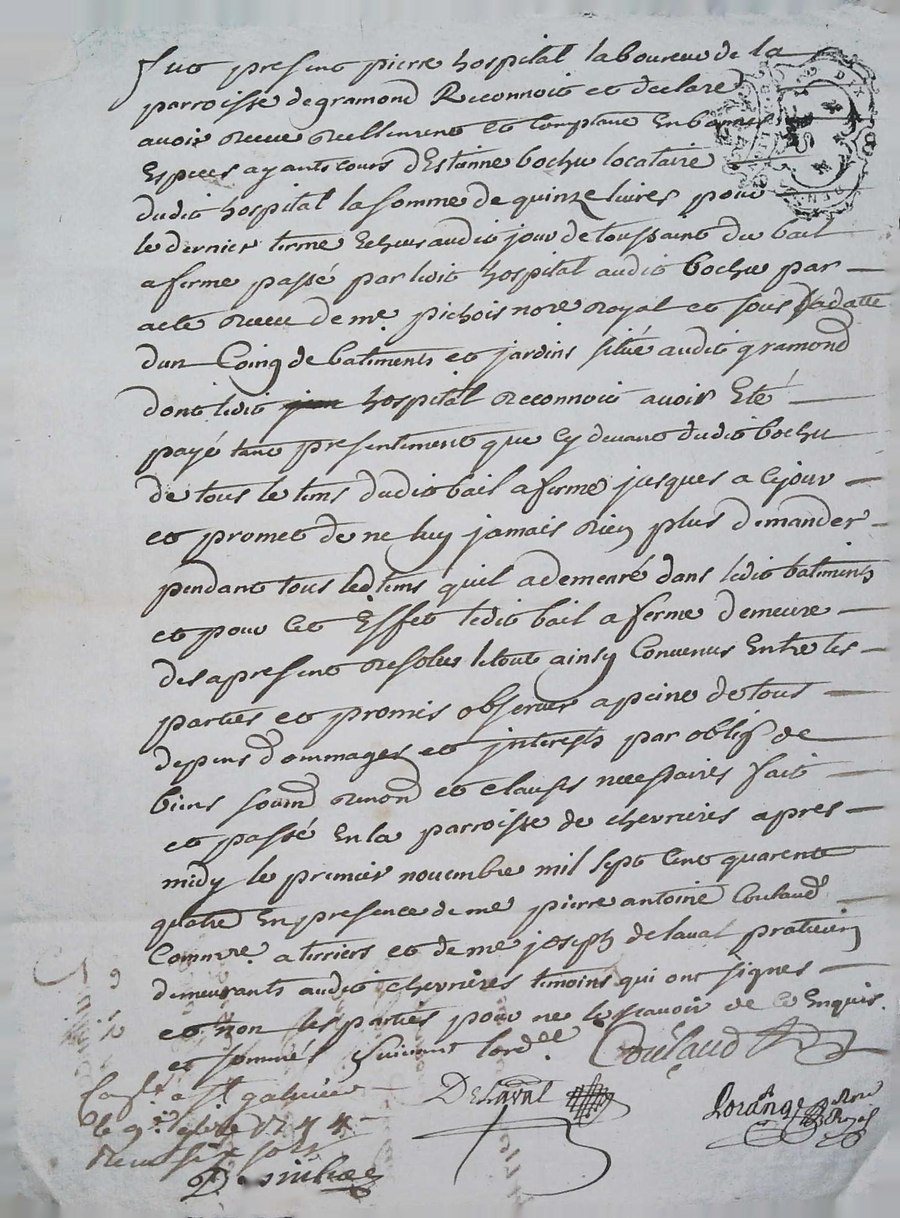 fut present pierre hospital laboureur de la
parroisse de gramond Reconnoit et declare
avoir receu reellement et comptant En bonnes
Especes ayants cours d'Estienne bochu locataire
dudit hospital la somme de quinze livres pour
le dernier terme Echeu audit jour de toussaint du bail
a ferme passé par ledit hospital audit bochu par
acte receu de me pichois nore royal et sous sa datte
dun Coing de batiments et jardins situé audit gramond
dont ledit hospital reconnoit avoir Eté
payé tant presentement que cy devant dudit bochu
de tous le tems dudit bail a ferme jusques a ce jour
et promet de ne luy jamais rien plus demander
pendant tous led tems quil a demeuré dans ledit batiments
et pour cet Effet ledit bail a ferme demeure
des apresent resolus le tout ainsy Convenus Entre les
parties et promis observer a peine de tous
depens dommages et interests par oblig de
biens soumd renond et clauses necessaires fait
et passé En la parroisse de chevrieres apres
midy le premier novembre mil sept cent quarente
quatre En presence de me pierre antoine Coulaud
Commre a terriers et de me joseph delaval praticien
demeurants audit chevrieres temoins qui ont signes
et non les parties pour ne le scavoir de ce Enquis
et sommés suivant lord
Coulaud
Delaval
nore Royal
Conlé a St galmier
le 1744